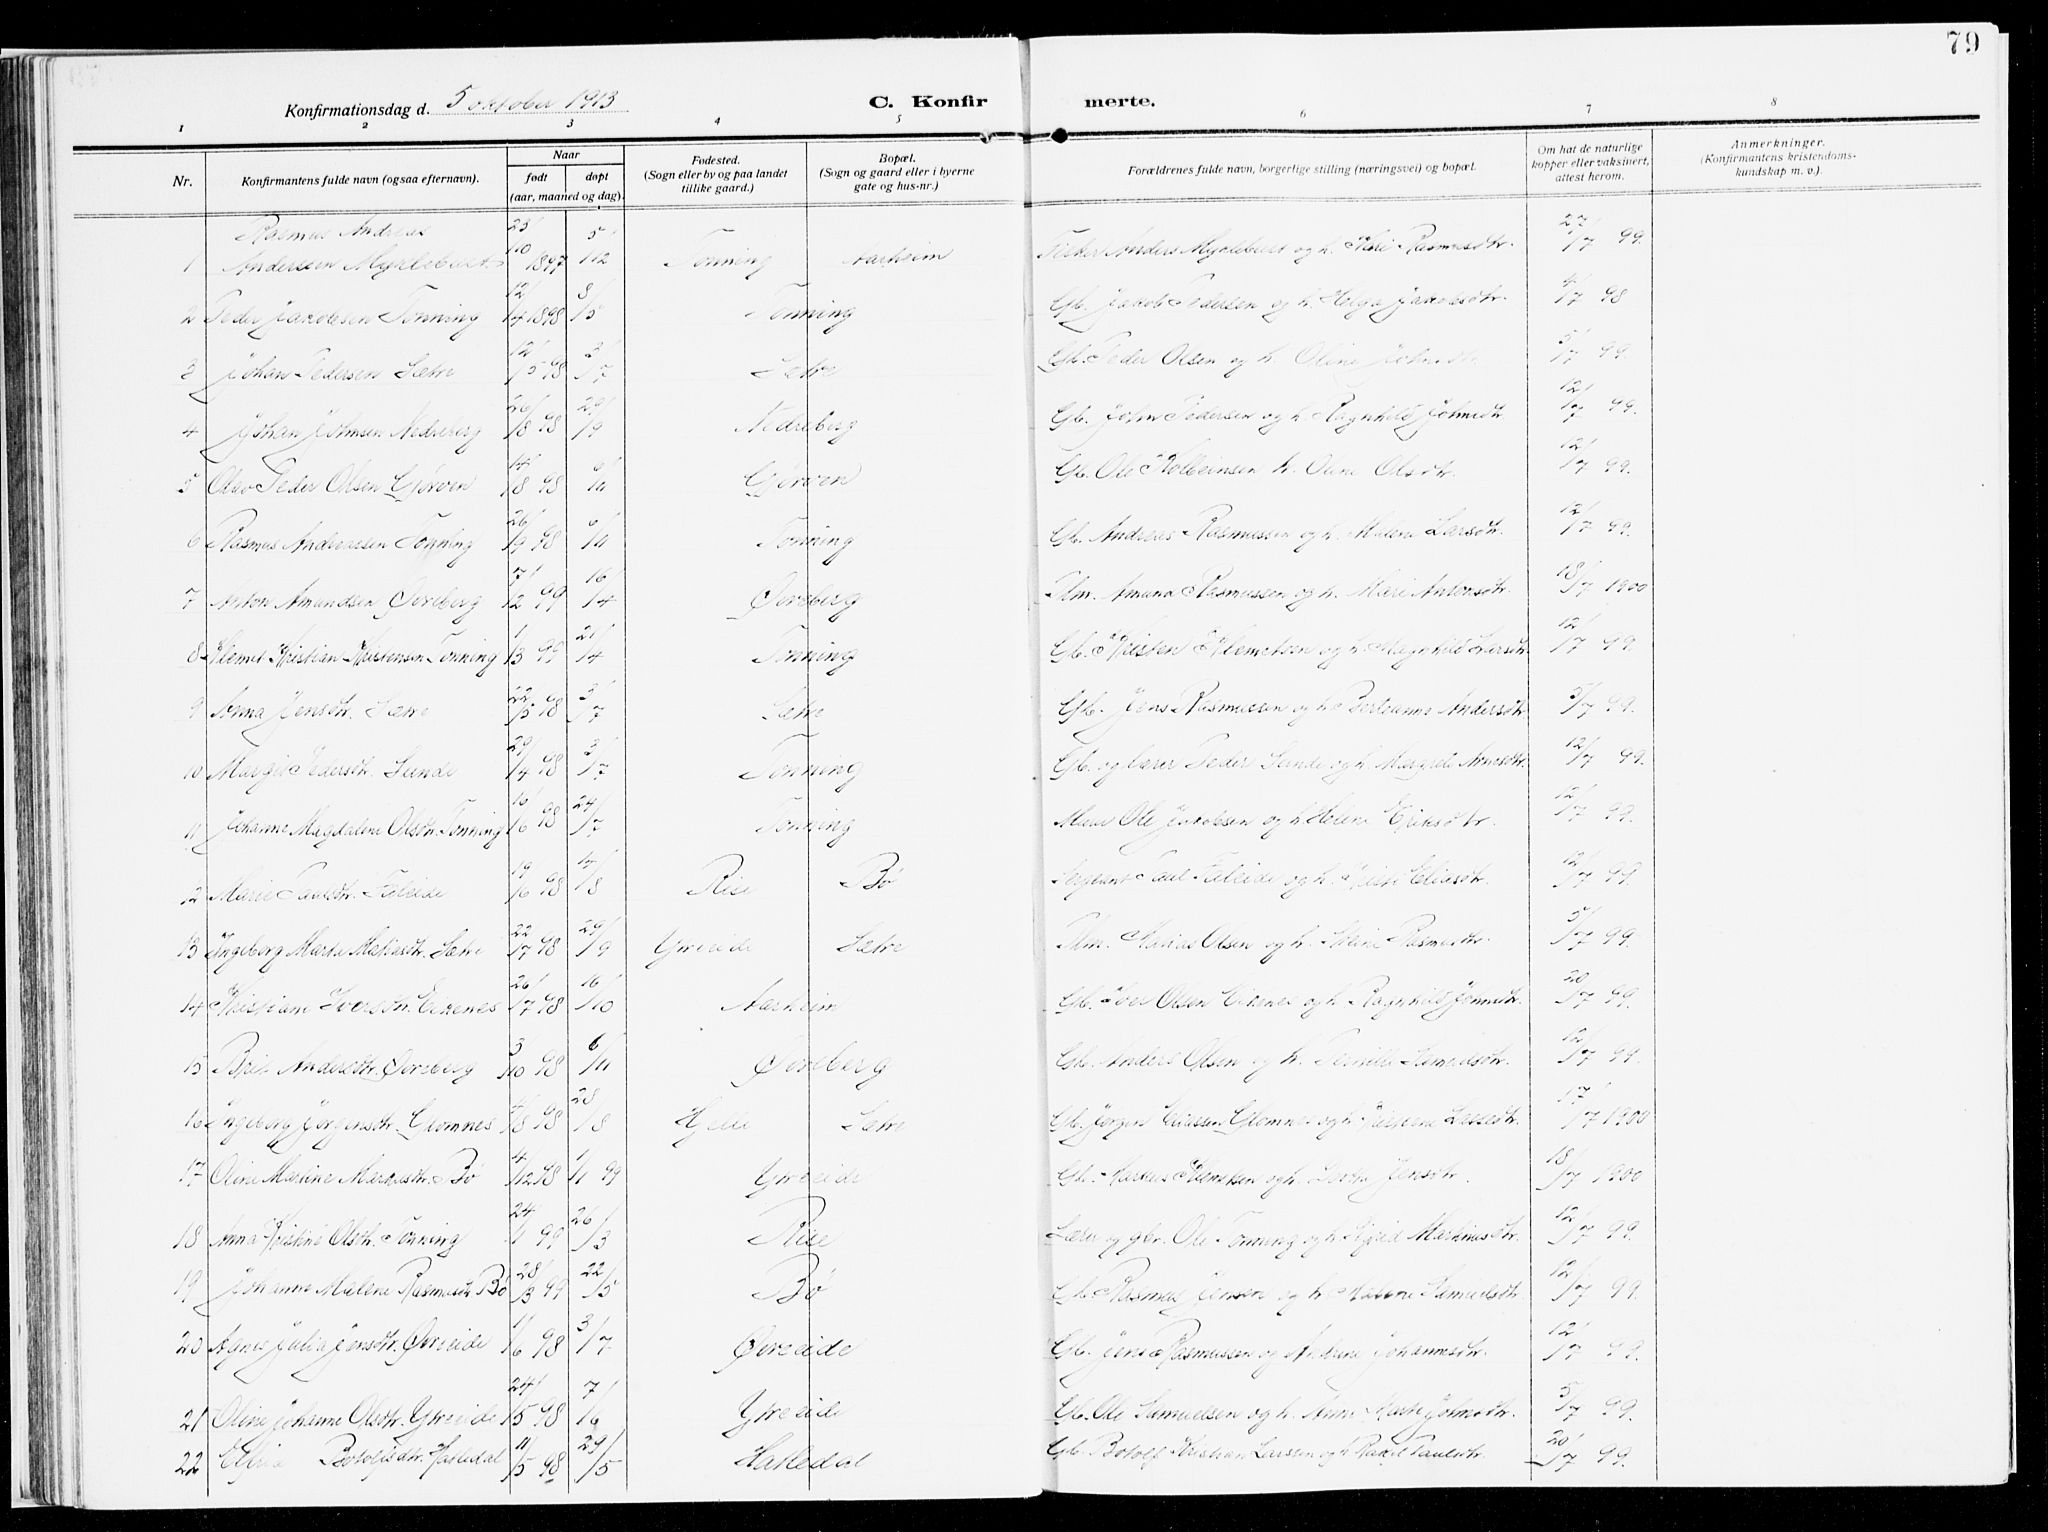 79
Konfirmationsdag d. 5 oktober 1913
C. Konfirmerte.
1 2 3 4 5 6 7 8
Nr.
Konfirmantens fulde navn (ogsaa efternavn).
Naar
født døpt
(aar, maaned og dag).
Fødested.
(Sogn eller by og paa landet
tillike gaard.)
Bopæl.
(Sogn og gaard eller i byerne
gate og hus-nr.)
Forældrenes fulde navn, borgerlige stilling (næringsvei) og bopæl.
Om hat de naturlige
kopper eller vaksinert,
attest herom.
Anmerkninger.
(Konfirmantens kristendoms-
kundskap m. v.).
Rasmus Andreas
1 Andersen Myklebust 25/10 1897 5/12 Tonning Aarheim Anders Myklebust og h. Kari Rasmusdtr. 27/7 99.
2 Peder Jakobsen Tonning 12/4 1898 8/5 Tonning Gb. Jakob Pedersen og h. Helga Jakobsdtr. 4/7 98
3 Johan Pedersen Sætre 12/5 98 3/7 Sætre Gb. Peder Olsen og h. Oline 5/7 99.
4 Johan Johnsen Nedreberg 26/8 98 29/9 Nedreberg Gb. John Pedersen og h. Ragnhild Johnsdtr. 12/7 99.
5 Olav Peder Olsen Gjørven 14/8 98 6/11 Gjørven Gb. Ole Kolbeinsen h. Oline Olsdtr. 12/7 99.
6 Rasmus Andreassen Tonning 26/9 98 6/11 Tonning Gb. Andreas Rasmussen og h. Malene Larsdtr. 12/7 99.
7 Anton Amundsen Øvreberg 7/2 99 16/4 Øvreberg Plm. Amund Rasmussen og h. Mari Antonsdtr. 18/7 1900
8 Klemet Kristian Kristensen Tonning 1/3 99 21/4 Tonning Gb. Kristen Klemetsen og h. Magnhild Larsdtr. 12/7 99.
9 Anna Jensdtr. Sætre 22/5 98 3/7 Sætre Gb. Jens Rasmussen og h. Berteanne Andersdtr. 5/7 99.
10 Margit Pedersdtr. Sunde 29/4 98 3/7 Tonning Gb. og lærer Peder Sunde og h. Margrete 12/7 99.
11 Johanne Magdalene Olsdtr. Tonning 16/6 98 24/7 Tonning Ole Jakobsen og h. Helene Eriksdtr. 12/7 99.
12 Marie Paulsdtr. Faleide 19/6 98 14/8 Rise Bø Sergeant Paul Faleide og h. Eliasdtr. 12/7 99.
13 Ingeborg Marta Matiasdtr. Sætre 22/7 98 29/9 Ytreeide Sætre Plm. Matias Olsen og h. Rasmusdtr. 5/7 99.
14 Kristiane Iversdtr. Eikenes 26/7 98 16/10 Aarheim Gb. Iver Olsen Eikenes og h. Ragnhild Jonnsdtr. 20/7 99.
15 Brit Andersdtr. Øvreberg 3/10 98 6/11 Øvreberg Gb. Anders Olsen og h. Pernille Samuelsdtr. 12/7 99.
16 Ingeborg Jørgensdtr. Glomnes 4/8 98 28/8 Hjelle Sætre Gb. Jørgen Eliassen Glomnes og h. Lassedtr. 17/7 1900
17 Oline Marine Markusdtr. Bø 4/12 98 1/1 99 Ytreeide Gb. Markus Klemetsen og h. Jensdtr. 18/7 1900
18 Anna Kristine Olsdtr. Tonning 24/1 99 26/3 Rise Lærer og gbr. Ole Tonning og h. Sigrid Markusdtr. 12/7 99.
19 Johanne Malene Rasmusdtr. Bø 28/3 99 22/5 Bø Gb. Rasmus Jensen og h. Malene Samuelsdtr. 12/7 99.
20 Agnes Julia Jensdtr. Øvreeide 1/6 98 3/7 Øvreeide Gb. Jens Rasmussen og Andrine Johannesdtr. 12/7 99.
21 Oline Johanne Olsdtr. Ytreeide 24/5 98 7/6 Ytreeide Gb. Ole Samuelsen og h. Anne Marte Johnsdtr. 5/7 99.
22 Elfrid Botolfsdtr. Hakledal 11/5 98 29/5 Hakledal Gb. Botolf Kristian Larssen og h. Rakel Paulsdtr. 20/7 99.